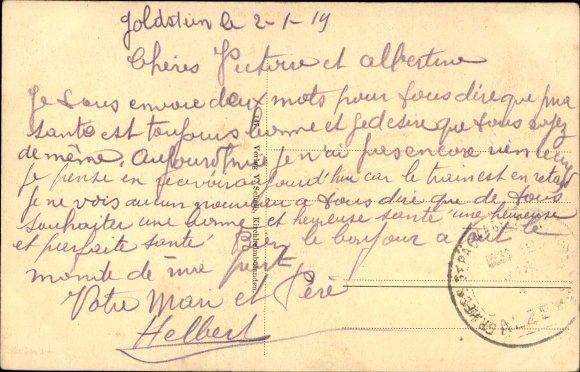 Goldstein le 2-1-19
Chères Victorie et Albertine
Je vous envoie deux mots pour vous dire que ma
santé est toujours bonne et je desire que vous soyez
de même. Aujourd'hui je n'ai pas encore rien recu
je pense en recevoir aujourd'hui car le train est en retard
Je ne vois aucun nouveau a vous dire que de vous
souhaiter une bonne et heureuse santé une heureuse
et parfaite santé le bonjour a tout le
monde de ma part
Votre Mari et Père
Helbert
Verlag V. Kirchheimbolanden
ALZEY